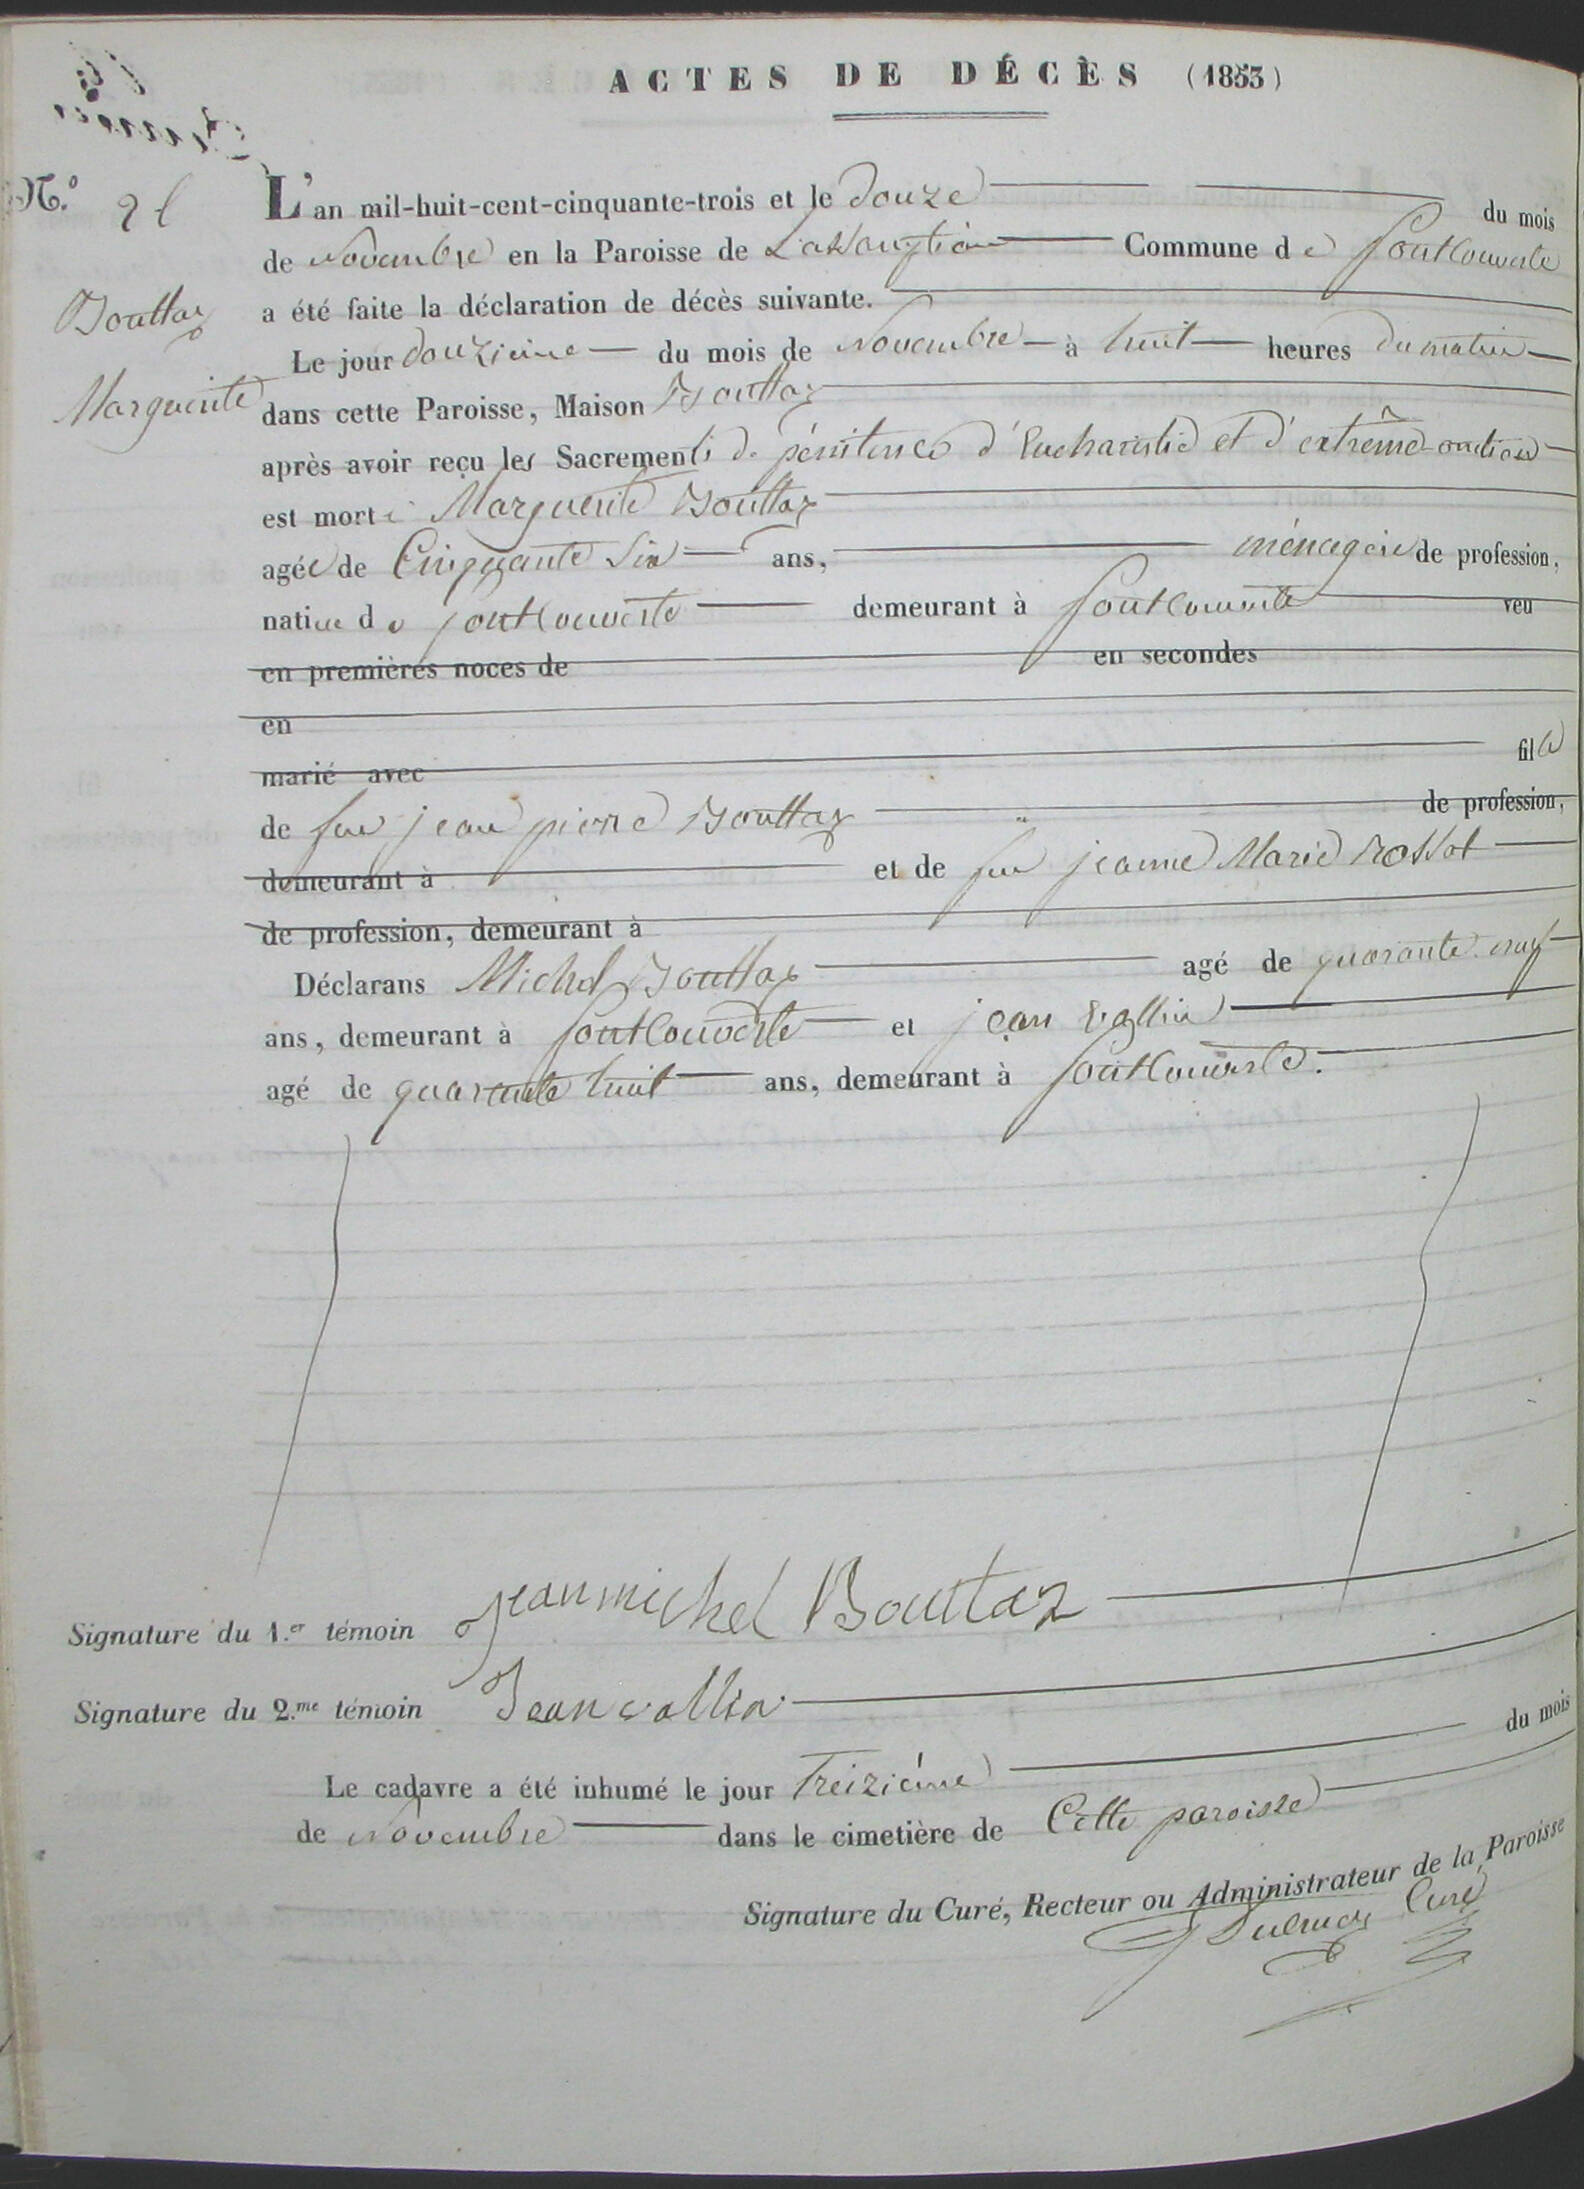 ACTES DE DÉCÈS (1853)
N.º
L'an mil-huit-cent-cinquante-trois et le Douze du mois
de Novembre en la Paroisse de L'assomption Commune de Fontcouverte
Bouttaz
a été faite la déclaration de décès suivante.
Le jour douzieme du mois de Novembre à huit heures du matin
Marguerite
dans cette Paroisse, Maison Bouttaz
après avoir reçu les Sacrements de pénitence d'Eucharistie et d'extrême-onction
est morte Marguerite Bouttaz
agée de Cinquante Six ans, ménagère de profession,
native de fontcouverte demeurant à fontcouverte veu
en premières noces de en secondes
en
marié avec fille
de feu jean pierre Bouttaz de profession,
demeurant à et de feu jeanne Marie Rossat
de profession, demeurant à
Déclarans Michel Bouttaz agé de quarante neuf
ans, demeurant à fontcouverte et jean Vallin
agé de quarante huit ans, demeurant à fontcouverte.
Signature du 1.er témoin jeanmichel Bouttaz
Signature du 2.me témoin Jean vallin
Le cadavre a été inhumé le jour Treizième du mois
de Novembre dans le cimetière de Cette paroisse
Signature du Curé, Recteur ou Administrateur de la Paroisse
Curé